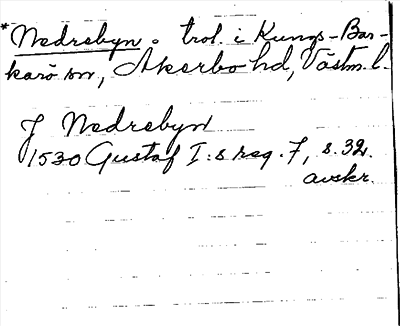 *Nedrebyn. trol. i Kungs-Bar-
karö sn, Åkerbo hd, Västm. l.
J Nedrebyn
1530 Gustaf I:s reg. 7, s. 32.
avskr.